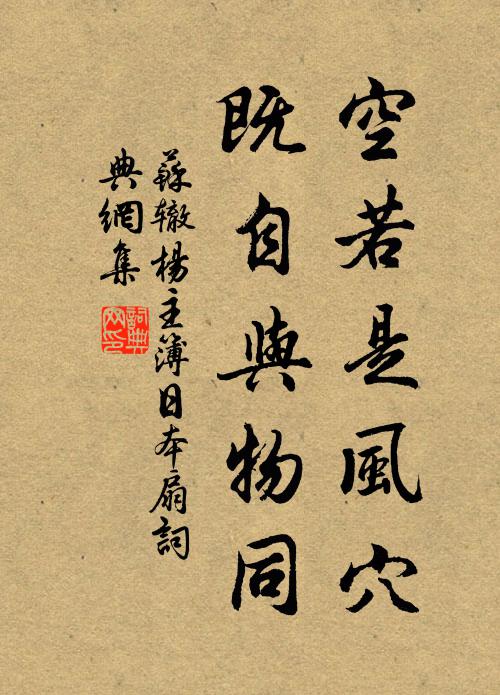 空若是風穴
既自與物同
蘇辙楊主簿日本扇詞
典網集
詞典網印